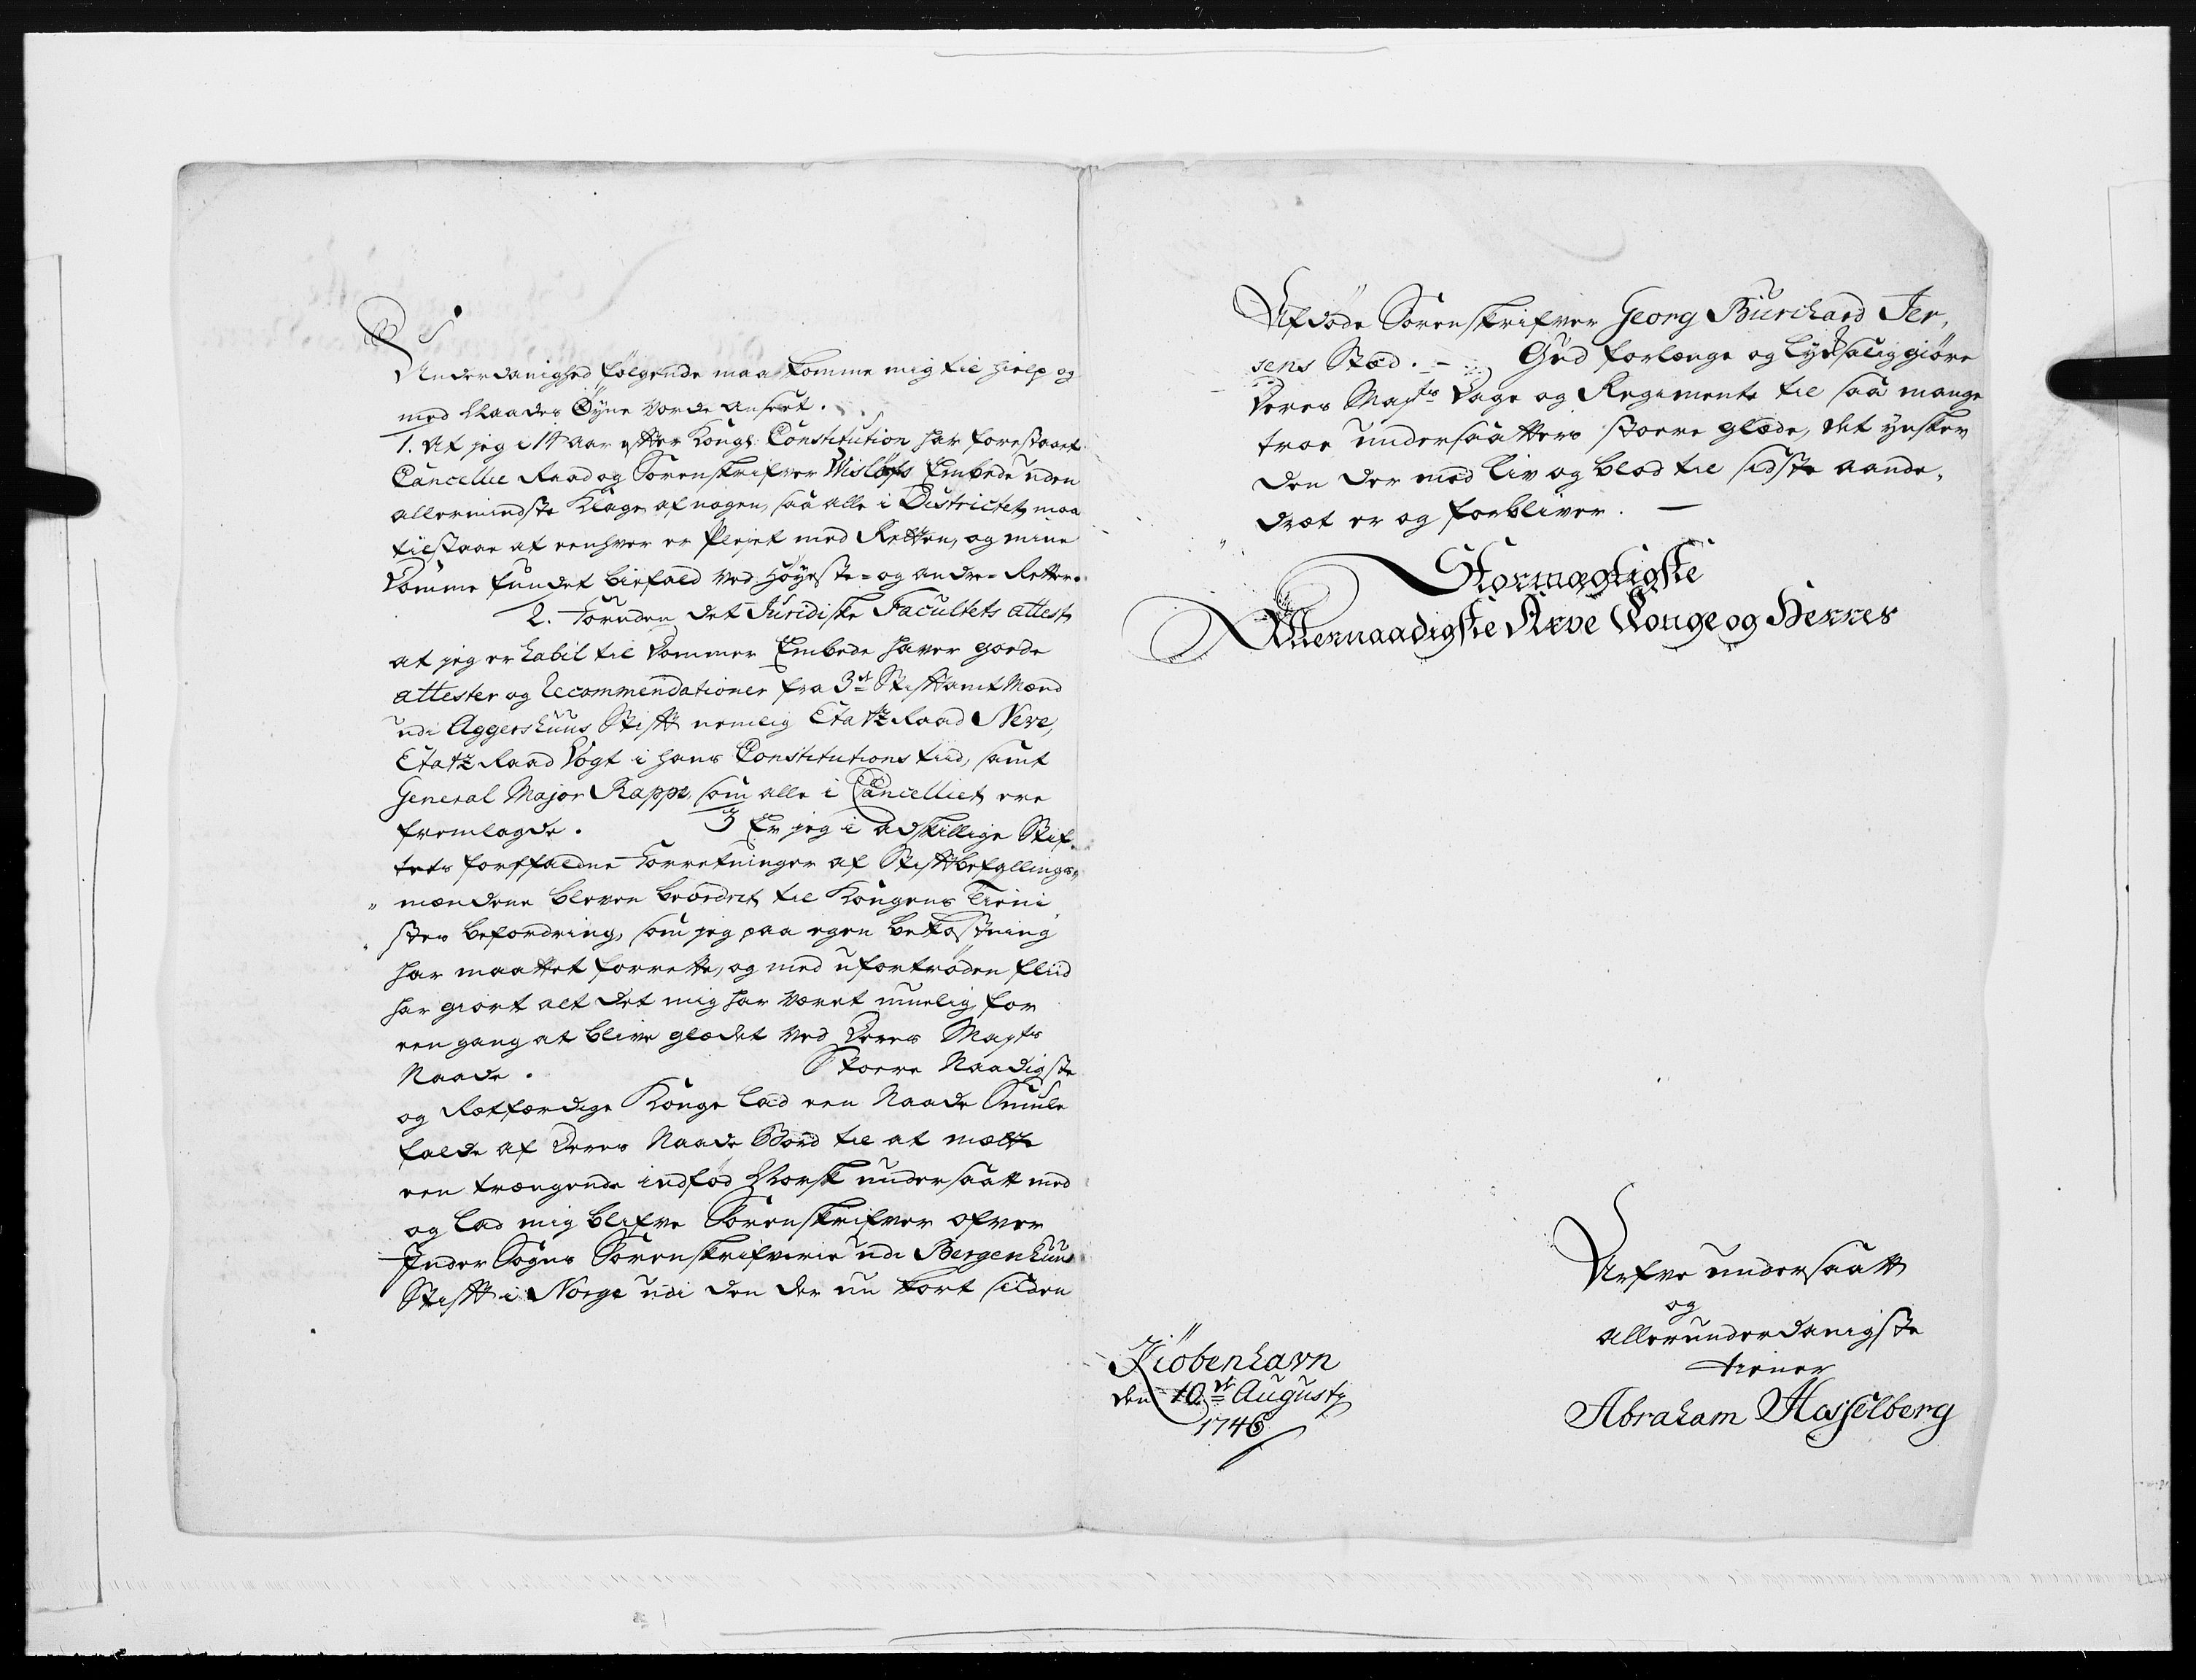 Underdanighed følgende maa komme mig til hielp og
med Naades Øyne vorde anseet.
1. At jeg i 14 aar efter Kongl: Constitution har forestaaet
Cancellie Raad og Sorenskrifver Wisløfs Embede uden
allermindste Klage af nogen, saa alle i Districtet maa
tilstaae at eenhver er Plejet med Retten, og mine
Domme fundet biefald ved Høyeste- og andre- Retter.
2. Foruden det Juridiske Facultets attest
at jeg er habil til Dommer Embede haver goede
attester og Recommendationer fra 3de Stiftamtmænd
udi Aggershuus Stift nemlig Etatz Raad Neve,
Etatz Raad Vogt i hans Constitutions tiid, samt
General Major Rappe, som alle i Cancelliet ere
fremlagde. 3 Er jeg i adskillige Stif-
tets forfaldne Forretninger af Stiftbefallings-
mændene bleven beordret til Kongens Tieni
stes befordring, som jeg paa egen bekostning
har maattet forrette, og med ufortrøden fliid
har giort alt det mig har været muelig for
een gang at blive glædet ved Deres Mayts
Naade. Store Naadigste
og Retfærdige Konge lad een Naade Smule
falde af Deres Naade Bord til at mætte
een trængende indfød Norsk undersaatt med
og lad mig blifve Sorenskrifver ofver
Inder Sogns Sorenskrifverie udi Bergenhuus
Stift i Norge udi den der nu kort siiden
Afdøde Sorenskrifver Georg Burchard Jer-
sens Stæd. - Gud forlænge og lyksaliggiøre
Deres Mayts Dage og Regimente til saa mange
troe undersaatters store glæde, det ynsker
den der med liv og blod til sidste aande-
dræt er og forbliver. —
Stormægtigste
Allernaadigste Arve Konge og Herres
Arfve undersaatt
og
allerunderdanigste
tiener
Abraham Hasselberg
Kiöbenhavn
den 10de Augusty
1746